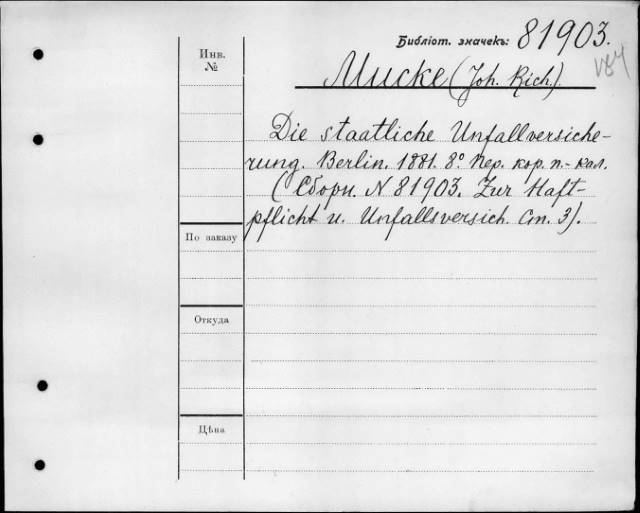 Библіот. значекъ: 81903.
Инв.
№
Mucke (Joh. Rich.)
Die staatliche Unfallversiche-
rung. Berlin. 1881. 8° Пер. кор. п.-кал.
(Сборн. N 81903. Zur Haft-
pflicht u. Unfallsversich. Ст. 3).
По заказу
Откуда
Цѣна